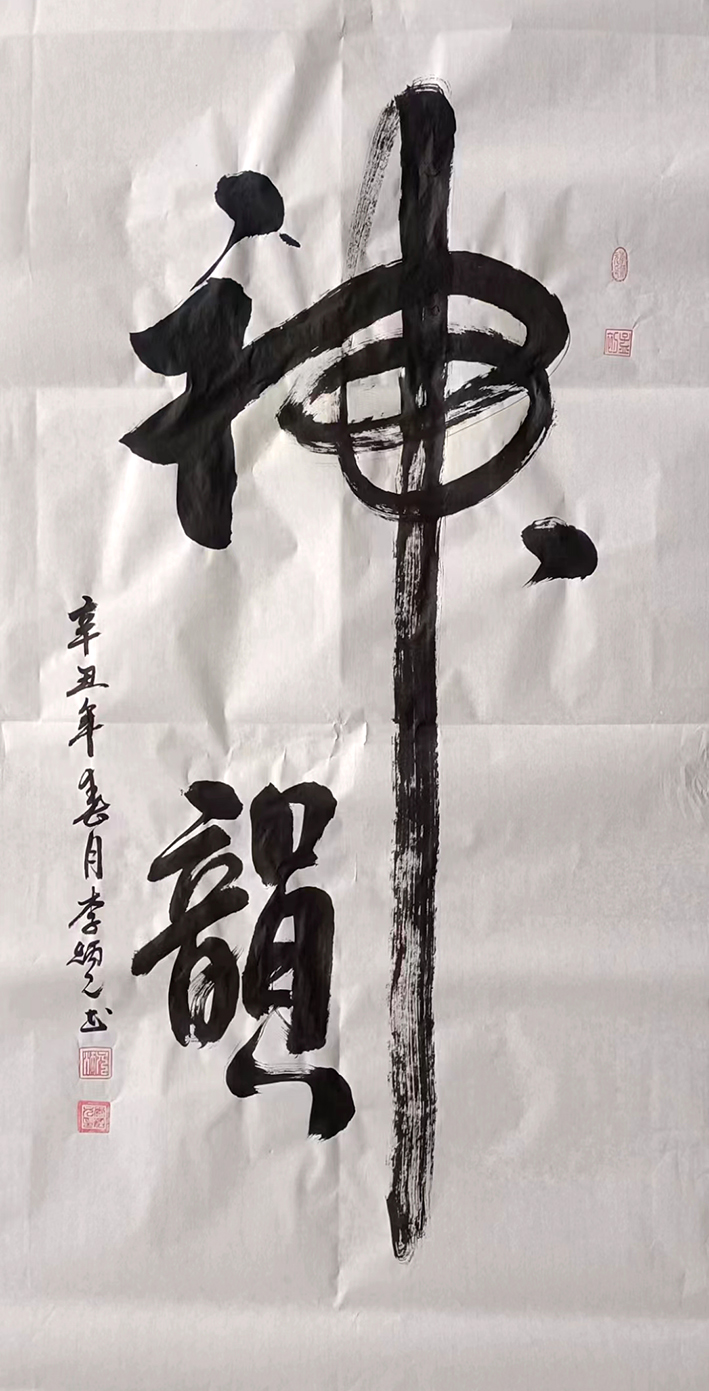 神韻
辛丑年春月李炳元书